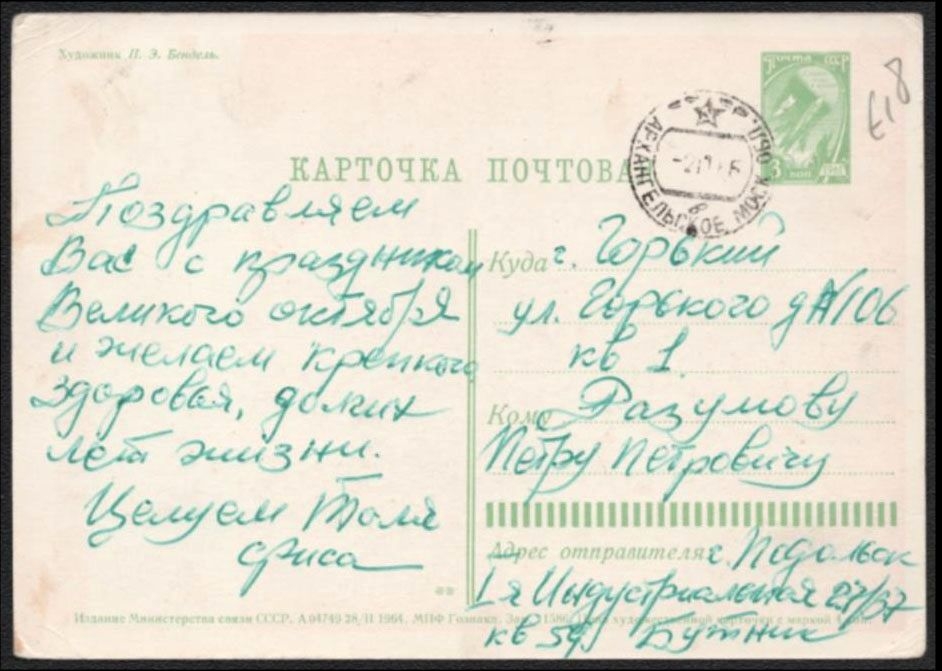 Художник П. Э. Бендель.
ПОЧТА СССР
3 КОП
Е18
АРХАНГЕЛЬСКОЕ МОСК. ОБЛ.
КАРТОЧКА ПОЧТОВАЯ
Поздравляем
Вас с праздником
Великого октября
и желаем крепкого
здоровья, долгих
лет жизни.
Целуем Толя
Куда г. Горький
ул. Горького д 106
кв 1.
Кому Разумову
Петру Петровичу
Адрес отправителя: г. Подольск
1я Индустриальная 27/37
кв 59 Бутник
Издание Министерства связи СССР. А 04749 28/II 1964. МПФ Гознака. Зак. 1586. Цена художественной карточки с маркой 4 коп.